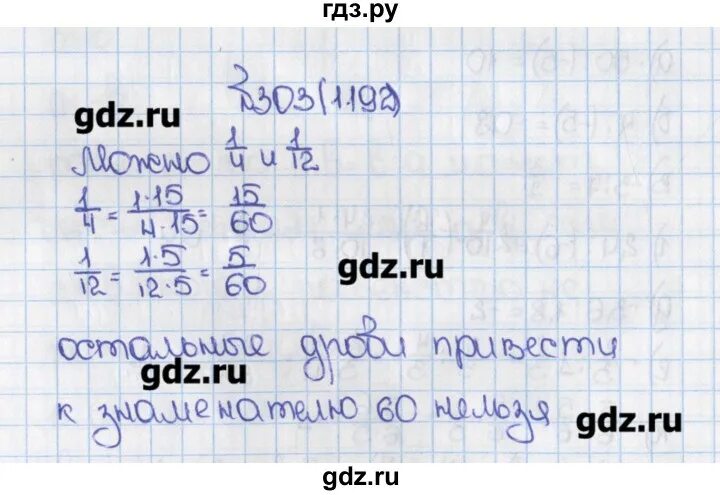 гдз.ру
№303(1192)
gdz.ru
Можно 1/4 и 1/12
1/4 = 1·15/4·15 = 15/60
1/12 = 1·5/12·5 = 5/60
gdz.ru
остальные дроби привести
gdz.ru
к знаменателю 60 нельзя
gdz.ru
gdz.ru